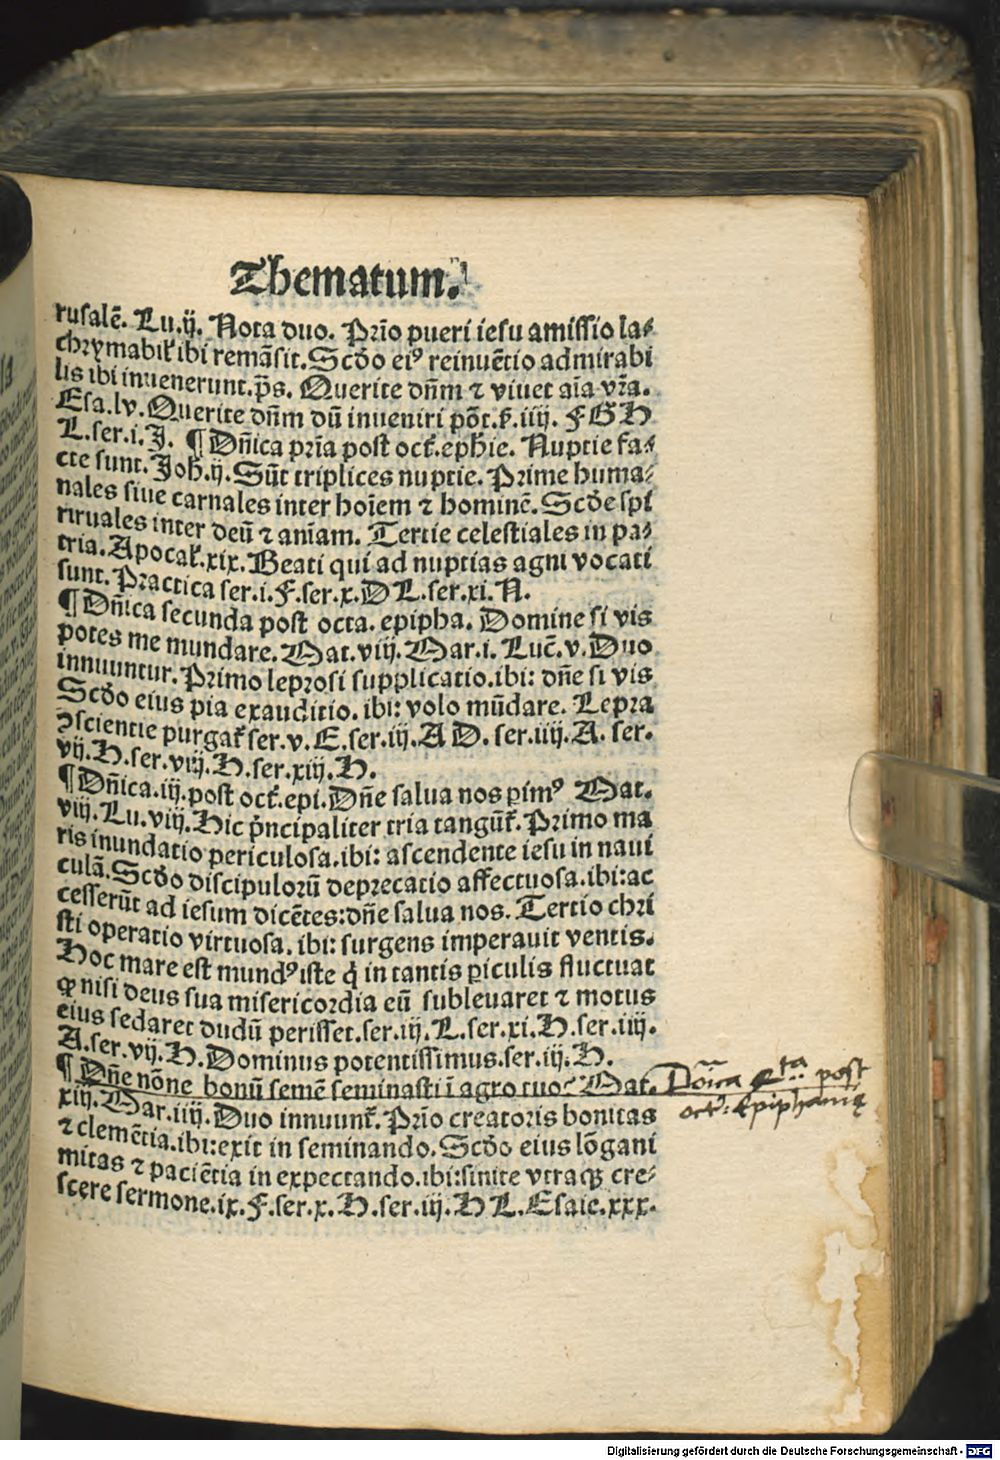 Thematum.
rusalē. Lu.ij. Nota duo. Prīo pueri iesu amissio la⸗
chrymabil' ibi remāsit. Scdo ei⁹ reinuētio admirabi
lis ibi inuenerunt. p̄s. Querite dn̄m ⁊ viuet aīa vr̄a.
Esa.lv. Querite dn̄m dū inueniri pōt. iiij. F G H
L.ser.i. J. ¶ Dn̄ica prīa post oct'.ephie. Nuptie fa⸗
cte sunt. Joh.ij. Sūt triplices nuptie. Prime huma⸗
nales siue carnales inter hoīem ⁊ hominē. Scde spi
rituales inter deū ⁊ aniam. Tertie celestiales in pa⸗
tria. Apocal'.xix. Beati qui ad nuptias agni vocati
sunt. Practica ser.i. F. ser.x. D L. ser.xi. N.
¶ Dn̄ica secunda post octa. epipha. Domine si vis
potes me mundare. Mat.viij. Mar.i. Luc̄.v. Duo
innuuntur. Primo leprosi supplicatio. ibi: dn̄e si vis
Scdo eius pia exauditio. ibi: volo mūdare. Lepra
ꝯscientie purgat' ser.v. E. ser.iij. A D. ser.iiij. A. ser.
vij. H. ser.viij. H. ser.xiij. H.
¶ Dn̄ica.iij. post oct'. epi. Dn̄e salua nos ꝑim⁹ Mat.
viij. Lu.viij. Hic p̄ncipaliter tria tangūt'. Primo ma
ris inundatio periculosa. ibi: ascendente iesu in naui
culā. Scdo discipulorū deprecatio affectuosa. ibi: ac
cesserūt ad iesum dicētes: dn̄e salua nos. Tertio chri
sti operatio virtuosa. ibi: surgens imperauit ventis.
Hoc mare est mund⁹ iste q̇ in tantis ꝑiculis fluctuat
ꝙ nisi deus sua misericordia eū subleuaret ⁊ motus
eius sedaret dudū perisset. ser.iij. L. ser.xi. H. ser.iiij.
A. ser.vij. H. Dominus potentissimus. ser.iij. H.
¶ Dn̄e nōne bonū semē seminasti ī agro tuo? Mat.
xiij. Mar.iiij. Duo innuunt'. Prīo creatoris bonitas
⁊ clemētia. ibi: exit in seminando. Scdo eius lōgani
mitas ⁊ paciētia in expectando. ibi: sinite vtraqꝫ cre⸗
scere sermone. ix. F. ser.x. H. ser.iij. H L. Esaie.xxx.
Do̅ica 4ta post
oct: Epiphanię
Digitalisierung gefördert durch die Deutsche Forschungsgemeinschaft - DFG